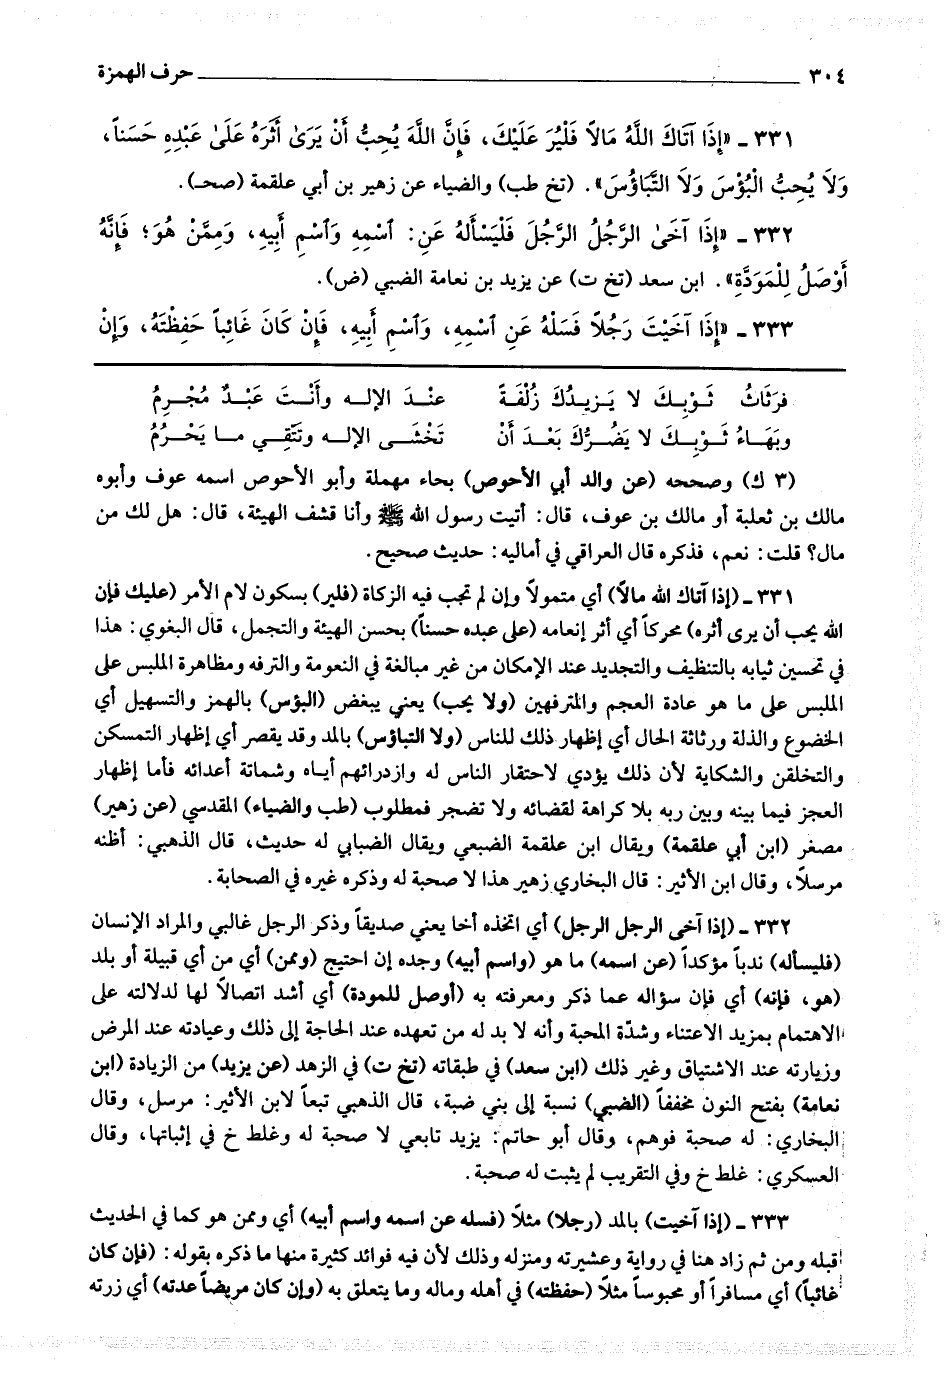 ٣٠٤ حرف الهمزة
٣٣١ ـ «إِذَا آتَاكَ اللَّهُ مَالاً فَلْيُرَ عَلَيْكَ، فَإِنَّ اللَّهَ يُحِبُّ أَنْ يَرَىٰ أَثَرَهُ عَلَىٰ عَبْدِهِ حَسَناً،
وَلاَ يُحِبُّ الْبُؤْسَ وَلاَ التَّبَاؤُسَ». (تخ طب) والضياء عن زهير بن أبي علقمة (صحـ).
٣٣٢ ـ «إِذَا آخَىٰ الرَّجُلُ الرَّجُلَ فَلْيَسْأَلهُ عَنِ: ٱسْمِهِ وَٱسْمِ أَبِيهِ، وَمِمَّنْ هُوَ؛ فَإِنَّهُ
أَوْصَلُ لِلْمَوَدَّةِ». ابن سعد (تخ ت) عن يزيد بن نعامة الضبي (ض).
٣٣٣ ـ «إِذَا آخَيْتَ رَجُلاً فَسَلْهُ عَنِ ٱسْمِهِ، وَٱسْمِ أَبِيهِ، فَإِنْ كَانَ غَائِباً حَفِظْتَهُ، وَإِنْ
فرَثَاثُ ثَوْبِكَ لا يَزِيدُكَ زُلْفَةً عنْدَ الإله وأَنْتَ عَبْدٌ مُجْرِمُ
وبَهَاءُ ثَوْبِكَ لا يَضُرُّكَ بَعْدَ أَنْ تَخْشَى الإله وتَتَّقِي ما يَحْرُمُ
(٣ ك) وصححه (عن والد أبي الأحوص) بحاء مهملة وأبو الأحوص اسمه عوف وأبوه
مالك بن ثعلبة أو مالك بن عوف، قال: أتيت رسول الله ﷺ وأنا قشف الهيئة، قال: هل لك من
مال؟ قلت: نعم، فذكره قال العراقي في أماليه: حديث صحيح.
٣٣١ ـ (إذا آتاك الله مالاً) أي متمولاً وإن لم تجب فيه الزكاة (فلير) بسكون لام الأمر (عليك فإن
الله يحب أن يرى أثره) محركاً أي أثر إنعامه (على عبده حسناً) بحسن الهيئة والتجمل، قال البغوي: هذا
في تحسين ثيابه بالتنظيف والتجديد عند الإمكان من غير مبالغة في النعومة والترفه ومظاهرة الملبس على
الملبس على ما هو عادة العجم والمترفهين (ولا يحب) يعني يبغض (البؤس) بالهمز والتسهيل أي
الخضوع والذلة ورثاثة الحال أي إظهار ذلك للناس (ولا التباؤس) بالمد وقد يقصر أي إظهار التمسكن
والتخلقن والشكاية لأن ذلك يؤدي لاحتقار الناس له وازدرائهم أياه وشماتة أعدائه فأما إظهار
العجز فيما بينه وبين ربه بلا كراهة لقضائه ولا تضجر فمطلوب (طب والضياء) المقدسي (عن زهير)
مصغر (ابن أبي علقمة) ويقال ابن علقمة الضبعي ويقال الضبابي له حديث، قال الذهبي: أظنه
مرسلاً، وقال ابن الأثير: قال البخاري زهير هذا لا صحبة له وذكره غيره في الصحابة.
٣٣٢ ـ (إذا آخى الرجل الرجل) أي اتخذه أخا يعني صديقاً وذكر الرجل غالبي والمراد الإنسان
(فليسأله) ندباً مؤكداً (عن اسمه) ما هو (واسم أبيه) وجده إن احتيج (وممن) أي من أي قبيلة أو بلد
(هو، فإنه) أي فإن سؤاله عما ذكر ومعرفته به (أوصل للمودة) أي أشد اتصالاً لها لدلالته على
الاهتمام بمزيد الاعتناء وشدّة المحبة وأنه لا بد له من تعهده عند الحاجة إلى ذلك وعيادته عند المرض
وزيارته عند الاشتياق وغير ذلك (ابن سعد) في طبقاته (تخ ت) في الزهد (عن يزيد) من الزيادة (ابن
نعامة) بفتح النون مخففاً (الضبي) نسبة إلى بني ضبة، قال الذهبي تبعاً لابن الأثير: مرسل، وقال
البخاري: له صحبة فوهم، وقال أبو حاتم: يزيد تابعي لا صحبة له وغلط خ في إثباتها، وقال
العسكري: غلط خ وفي التقريب لم يثبت له صحبة.
٣٣٣ ـ (إذا آخيت) بالمد (رجلا) مثلاً (فسله عن اسمه واسم أبيه) أي وممن هو كما في الحديث
قبله ومن ثم زاد هنا في رواية وعشيرته ومنزله وذلك لأن فيه فوائد كثيرة منها ما ذكره بقوله: (فإن كان
غائباً) أي مسافراً أو محبوساً مثلاً (حفظته) في أهله وماله وما يتعلق به (وإن كان مريضاً عدته) أي زرته